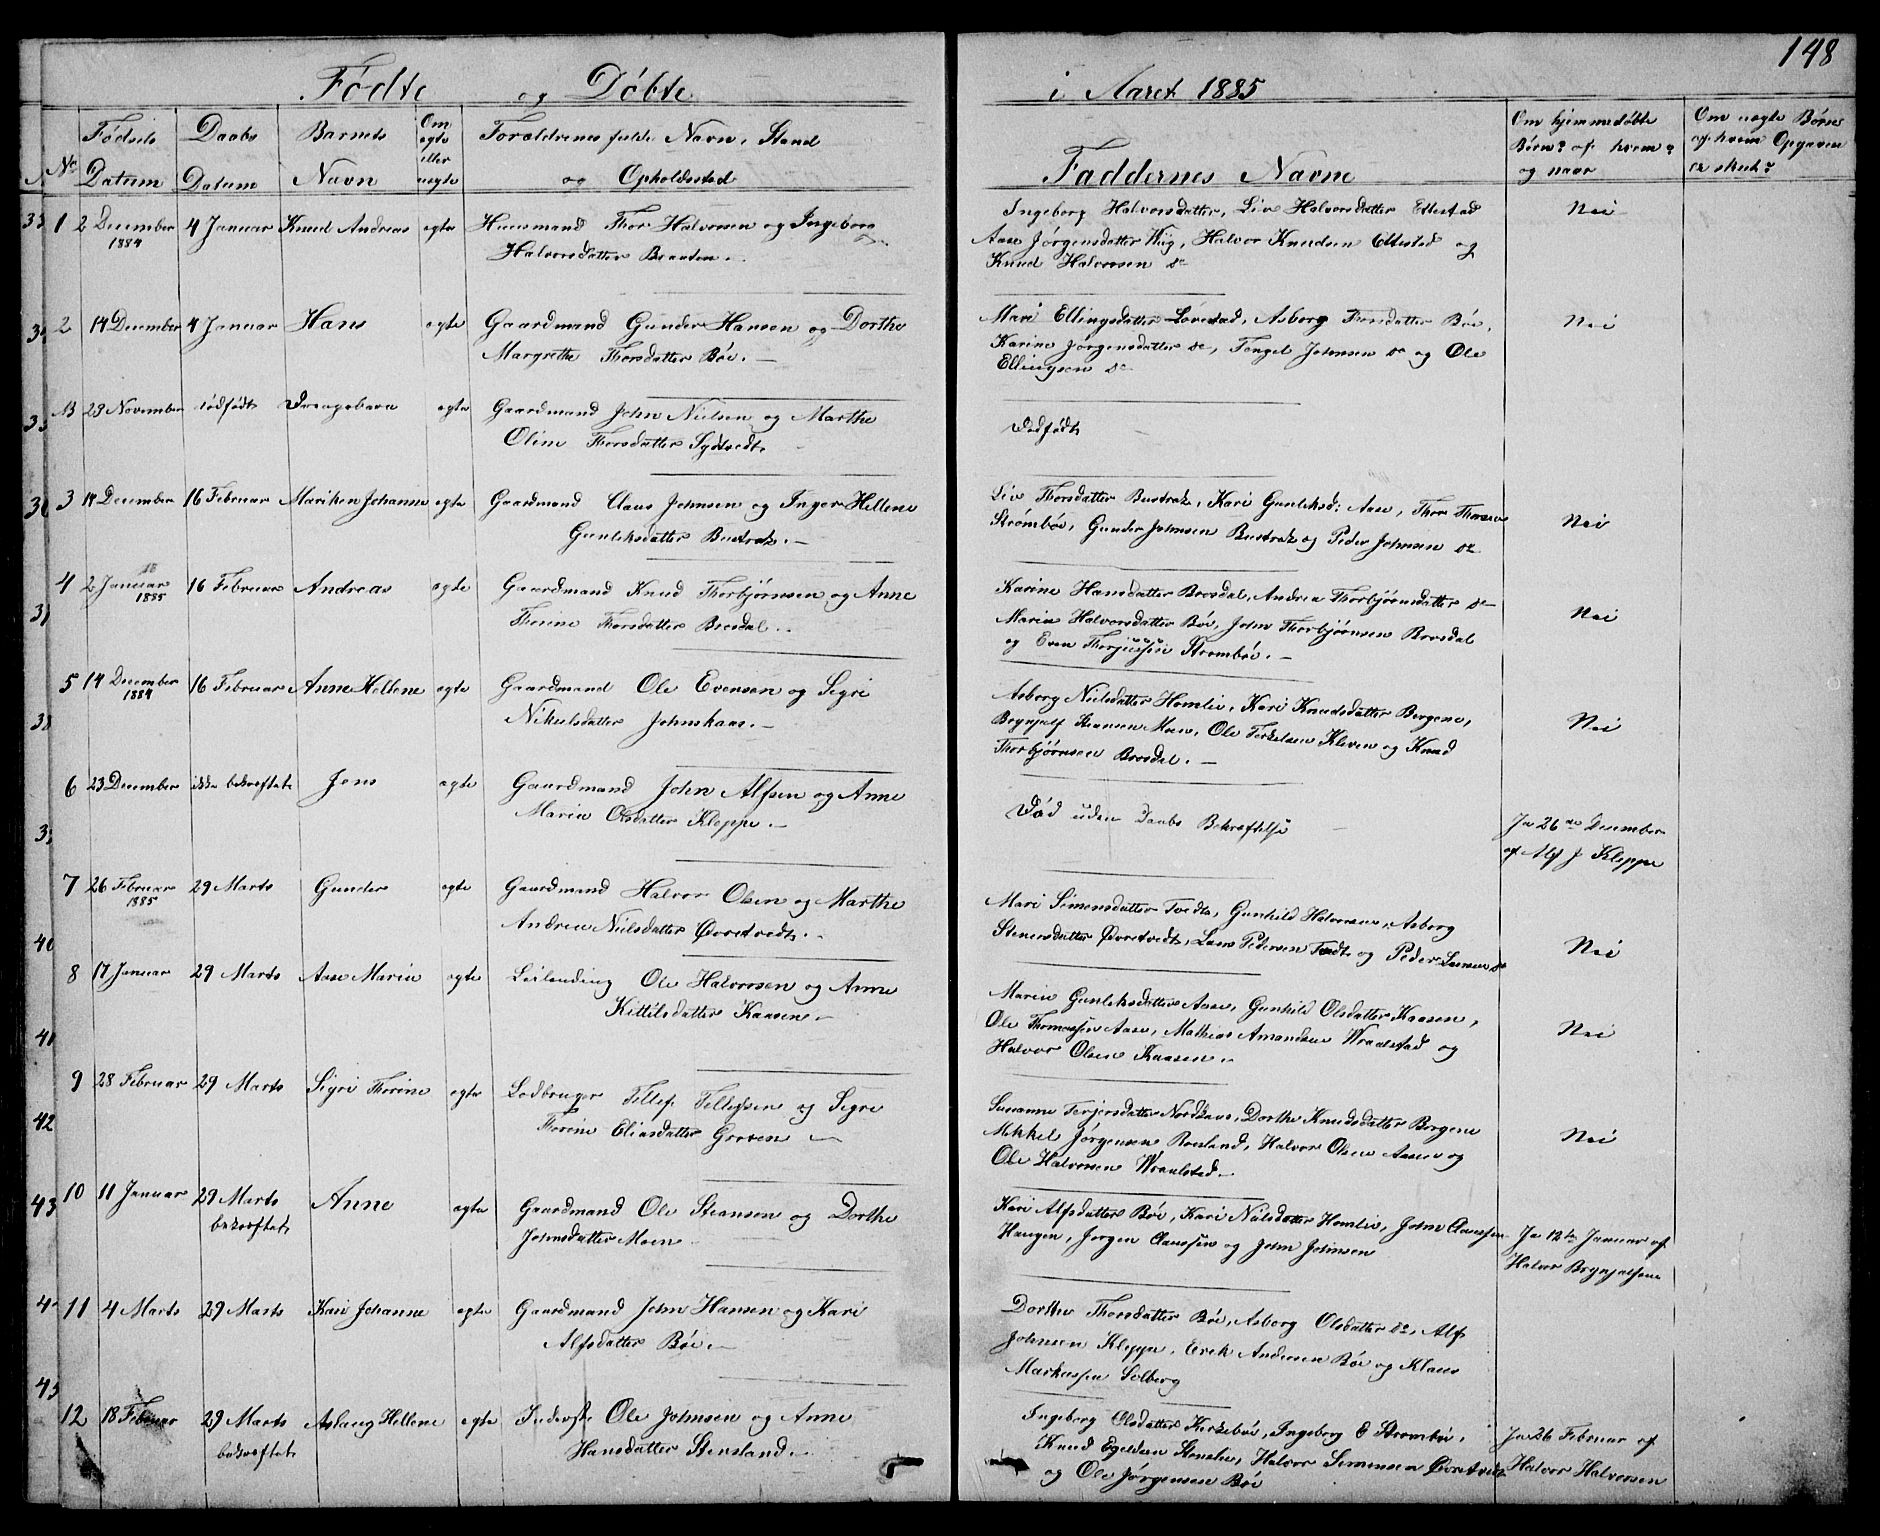 148
Fødte og Døbte i Aaret 1885
No Fødsels Datum
Daabs Datum
Barnets Navn
Om ægte eller uægte
Forældrenes fulde Navn, Stand og Opholdssted
Faddernes Navne
Om hjemmedøbte Børn? af hvem? og naar
Om uægte Børn af hvem Opgaven er skeet?
1 2 December 1884 4 Januar Knud Andreas ægte Huusmand Thor Halvorsen og Ingeborg
Halvorsdatter Braaten.
Ingeborg Halvorsdatter, Liv Halvorsdatter Ettestad
Aase Jørgensdatter Wiig, Halvor Knudsen Ettestad og
Knud Halvorsen do
Nei
2 14 December 4 Januar Hans ægte Gaardmand Gunder Hansen og Dorthe
Margrethe Thorsdatter Bøe.
Mari Ellingsdatter Lovestad, Asborg Thorsdatter Bøe,
Karine Jørgensdatter do, Tengel Johnsen do og Ole
Ellingsen do
Nei
B 23 November dødfødt Drengebarn ægte Gaardmand John Nielsen og Marthe
Oline Thorsdatter Sydtvedt.
Dødfødt
3 14 December 16 Februar Mariken Johanne ægte Gaardmand Claus Johnsen og Inger Hellene
Gunleksdatter Bustrak.
Liv Thorsdatter Bustrak, Kari Gunleksd: Aase, Thor Thorsen
Strømbøe, Gunder Johnsen Bustrak og Peder Johnsen do
Nei
4 2 Januar 1885 16 Februar Andreas ægte Gaardmand Knud Thorbjørnsen og Anne
Thorine Thorsdatter Brosdal.
Karine Hansdatter Brosdal, Andrea Thorbjørnsdatter do
Maria Halvorsdatter Bøe, John Thorbjørnsen Brosdal
og Even Strømbøe.
Nei
5 14 December 1884 16 Februar Anne Hellene ægte Gaardmand Ole Evensen og Segri
Nikulsdatter Johnskaas.
Asborg Nielsdatter Homlie, Kari Knudsdatter Bergene,
Brynjulf Steansen Moen, Ole Terkelsen Kleven og Knud
Thorbjørnsen Brosdal.
Nei
6 23 December ikke bekræftet Jens ægte Gaardmand John Alfsen og Anne
Maria Olsdatter Kleppe.
Død uden Daabs Bekræftelse
Ja 26de December
af Alf J Kleppe
7 26 Februar 1885 29 Marts Gunder ægte Gaardmand Halvor Olsen og Marthe
Andrea Nielsdatter Øvretvedt.
Mari Simensdatter Tvedt, Gunhild Halvorsen, Asborg
Stenersdatter Øvretvedt, Lars Pedersen Tvedt og Peder Larsen do
Nei
8 17 Januar 29 Marts Aase Maria ægte Leilending Ole Halvorsen og Anne
Kittilsdatter Kaasen.
Maria Gunleksdatter Aase, Gunhild Olsdatter Kaasen,
Ole Thomassen Aase, Mathias Amundsen Wraalstad og
Halvor Olsen Kaasen.
Nei
9 28 Februar 29 Marts Sigri Thorine ægte Lodbruger Tellef Tellefsen og Segre
Torine Eliasdatter Groven
Susanne Terjersdatter Nordkaas, Dorthe Knudsdatter Borgene
Mikkel Jørgensen Roesland, Halvor Olsen Aasen og
Ole Halvorsen Wraalstad.
Nei
10 11 Januar 29 Marts bekræftet Anne ægte Gaardmand Ole Steansen og Dorthe
Johnsdatter Moen
Kari Alfsdatter Bøe, Kari Nielsdatter Homlie, John Claussen
Haugen, Jørgen Claussen og John Johnsen
Ja 12te Januar af
Halvor Brynjulfsen
11 4 Marts 29 Marts Kari Johanne ægte Gaardmand John Hansen og Kari
Alfsdatter Bøe.
Dorthe Thorsdatter Bøe, Asborg Olsdatter do, Alf
Johnsen Kleppe, Erek Andersen Bøe og Klaus
Markussen Solberg
12 18 Februar 29 Marts bekræftet Aslaug Hellene ægte Inderste Ole Johnsen og Anne
Hansdatter Stensland.
Ingeborg Olsdatter Kirkebøe, Ingeborg E Strømbøe,
Knud Egeldsen Halvor Simensen Øvretvedt
og Ole Jørgensen Bøe
Ja 26 Februar af
Halvor Halvorsen